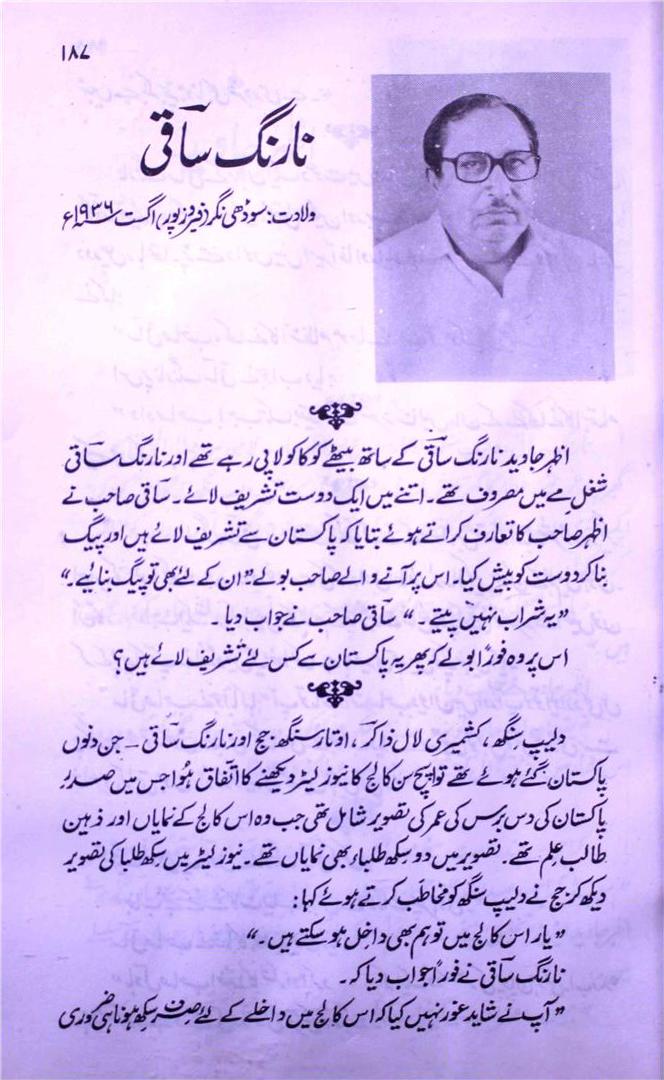 ۱۸۷
نارنگ ساقی
ولادت: سوڈھی نگر (فیروزپور) اگست ۱۹۳۶ء
اظہر جاوید نارنگ ساقی کے ساتھ بیٹھے کوکاکولا پی رہے تھے اور نارنگ ساقی
شغل مے میں مصروف تھے۔ اتنے میں ایک دوست تشریف لائے۔ ساقی صاحب نے
اظہر صاحب کا تعارف کراتے ہوئے بتایا کہ پاکستان سے تشریف لائے ہیں اور پیگ
بنا کر دوست کو پیش کیا۔ اس پر آنے والے صاحب بولے "ان کے لئے بھی تو پیگ بنائیے۔"
"یہ شراب نہیں پیتے۔" ساقی صاحب نے جواب دیا۔
اس پر وہ فوراً بولے کہ پھر یہ پاکستان سے کس لئے تشریف لائے ہیں؟
دلیپ سنگھ، کشمیری لال ذاکر، اوتار سنگھ جج اور نارنگ ساقی – جن دنوں
پاکستان گئے ہوئے تھے تو ایچ سن کالج کا نیوز لیٹر دیکھنے کا اتفاق ہوا جس میں صدر
پاکستان کی دس برس کی عمر کی تصویر شامل تھی جب وہ اس کالج کے نمایاں اور ذہین
طالب علم تھے۔ تصویر میں دو سکھ طلباء بھی نمایاں تھے۔ نیوز لیٹر میں سکھ طلبا کی تصویر
دیکھ کر جج نے دلیپ سنگھ کو مخاطب کرتے ہوئے کہا:
"یار اس کالج میں تو ہم بھی داخل ہو سکتے ہیں۔"
نارنگ ساقی نے فوراً جواب دیا کہ۔
"آپ نے شاید غور نہیں کیا کہ اس کالج میں داخلے کے لئے صرف سکھ ہونا ہی ضروری